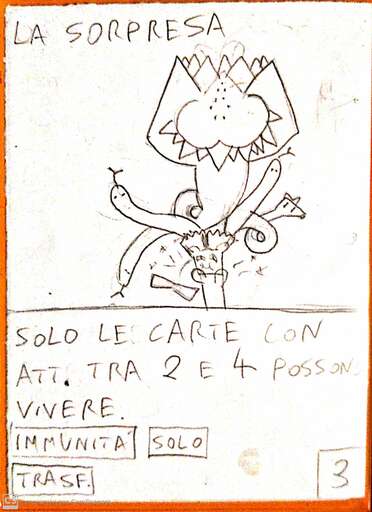 LA SORPRESA
SOLO LE CARTE CON
ATT. TRA 2 E 4 POSSON
VIVERE.
IMMUNITÀ SOLO
TRASF.
3